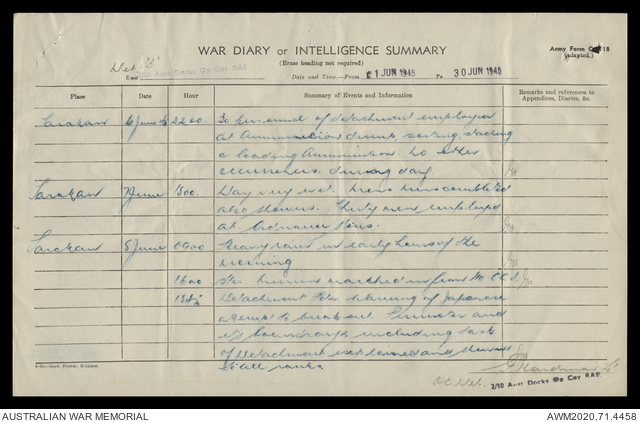 WAR DIARY or INTELLIGENCE SUMMARY
(Erase heading not required)
Army Form C 118
(adapted.)
Det. "B"
Unit 2/10 Aust Docks Op Coy RAE
Date and Time.—From 1 JUN 1945 To 30 JUN 1945
Place Date Hour Summary of Events and Information Remarks and references to Appendices, Diaries, &c.
Tarakan 6 June 2200. 30 personnel of detachment employed
at Ammunition dump, sorting, stacking
& loading Ammunition. No other
during day
Tarakan 7 June 1800. Day very wet. Mess completed
also showers. Thirty men employed
at Ordnance Stores.
Tarakan 8 June 0900 Heavy rain in early hours of the
morning
1600 marched in from
Detachment warning of Japanese
attempt to break out. Perimeter and
including task
of Detachment explained and
to all ranks.
4-43—Govt. Printer, Brisbane.
OC Det. 2/10 Aust Docks Op Coy RAE
AUSTRALIAN WAR MEMORIAL
AWM2020.71.4458